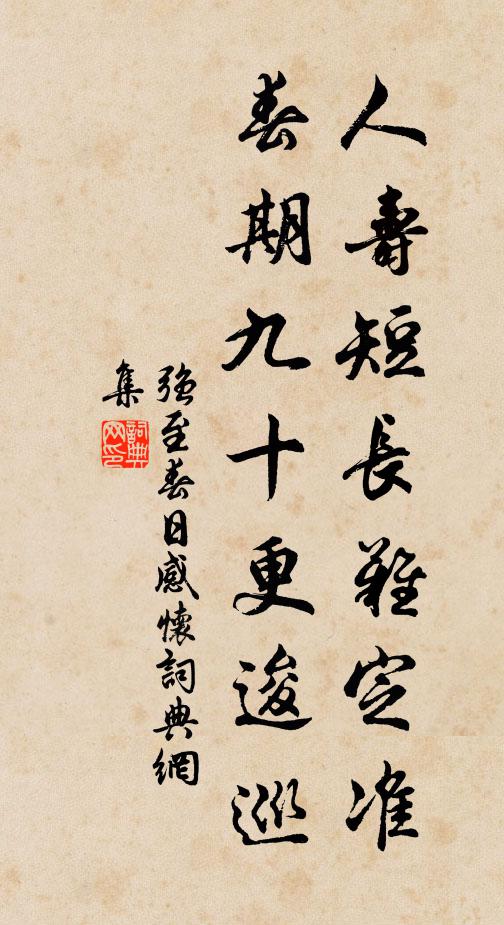 人壽短長難定准
春期九十更逡巡
强至春日感懷詞典網
集
詞典网印